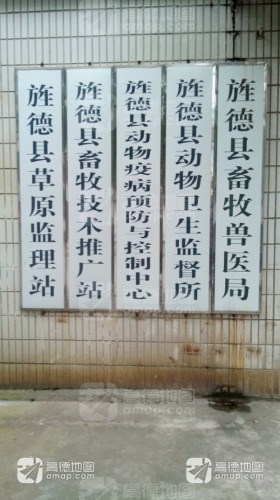 旌德县草原监理站
旌德县畜牧技术推广站
旌德县动物疫病预防与控制中心
旌德县动物卫生监督所
旌德县畜牧兽医局
高德地图
amap.com
高德地图
amap.com
高德地图
amap.com